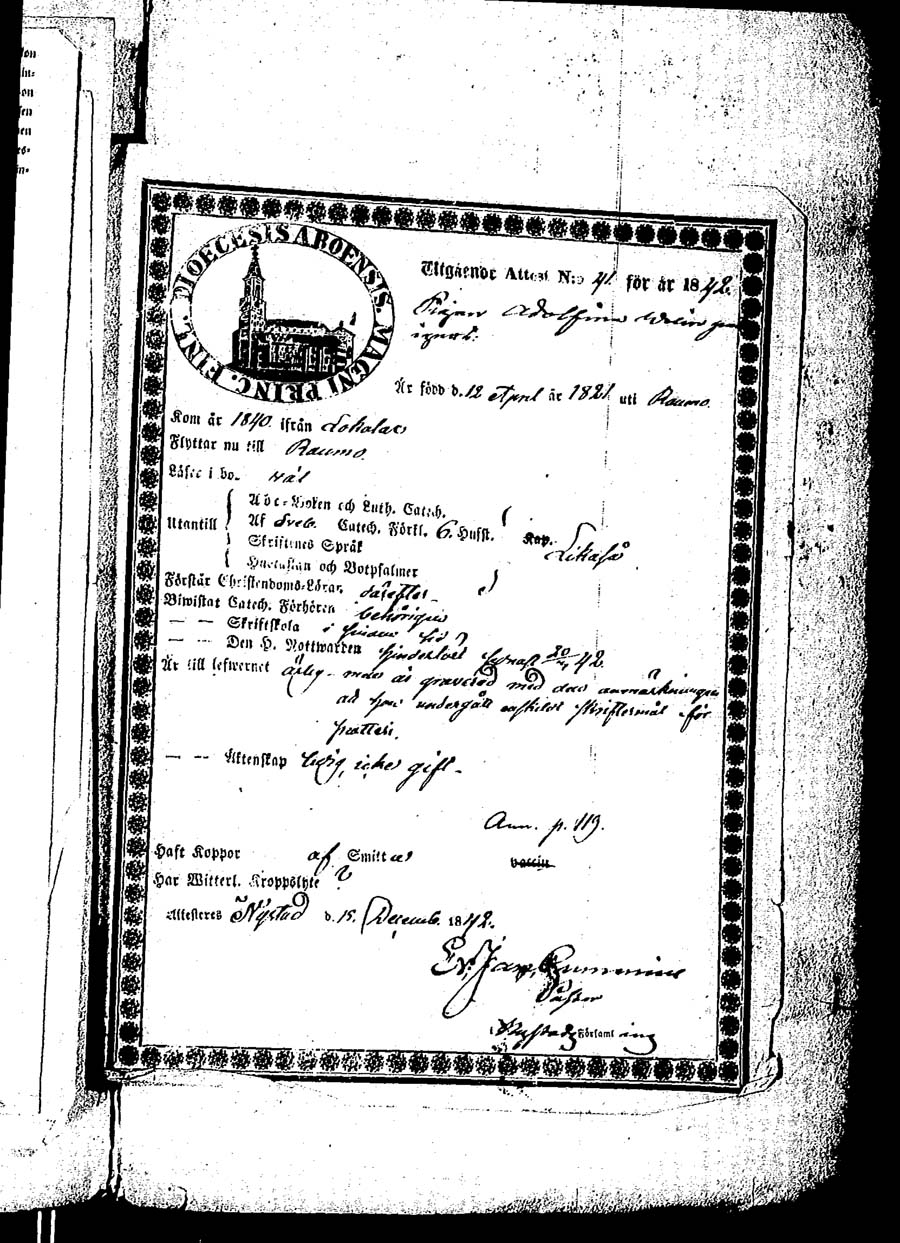 DIOECESIS ABOENSIS. MAGNI PRINC. FINL.
Utgående Attest N:o 41. för år 1842.
Pigan Adolfina
Är född d. 12 April år 1821 uti Raumo.
Kom år 1840 ifrån Lokalax
Flyttar nu till Raumo.
Läser i bo. wäl
Utantill
A b c-Boken och Luth. Catech.
Af Sveb. Catech. Förkl. 6. Hufst. Kap.
Skriftenes Språk
Hustaflan och Botpsalmer
Förstår Christendoms-Läran
Biwistat Catech. Förhören behörigen
— — Skriftskola i sinom tid
— — Den H. Nattwarden senast 42.
Är till lefwernet ärlig men är graverad med den anmärkningen
att hon undergått enskildt skriftermål för
— — Äktenskap ledig, icke gift.
Ann. p. 119.
Haft Koppor af Smittan
vaccin
Har Witterl. Kroppslyte
Attesteres Nystad d. 15. Decemb. 1842.
Pastor
Nystads Församling